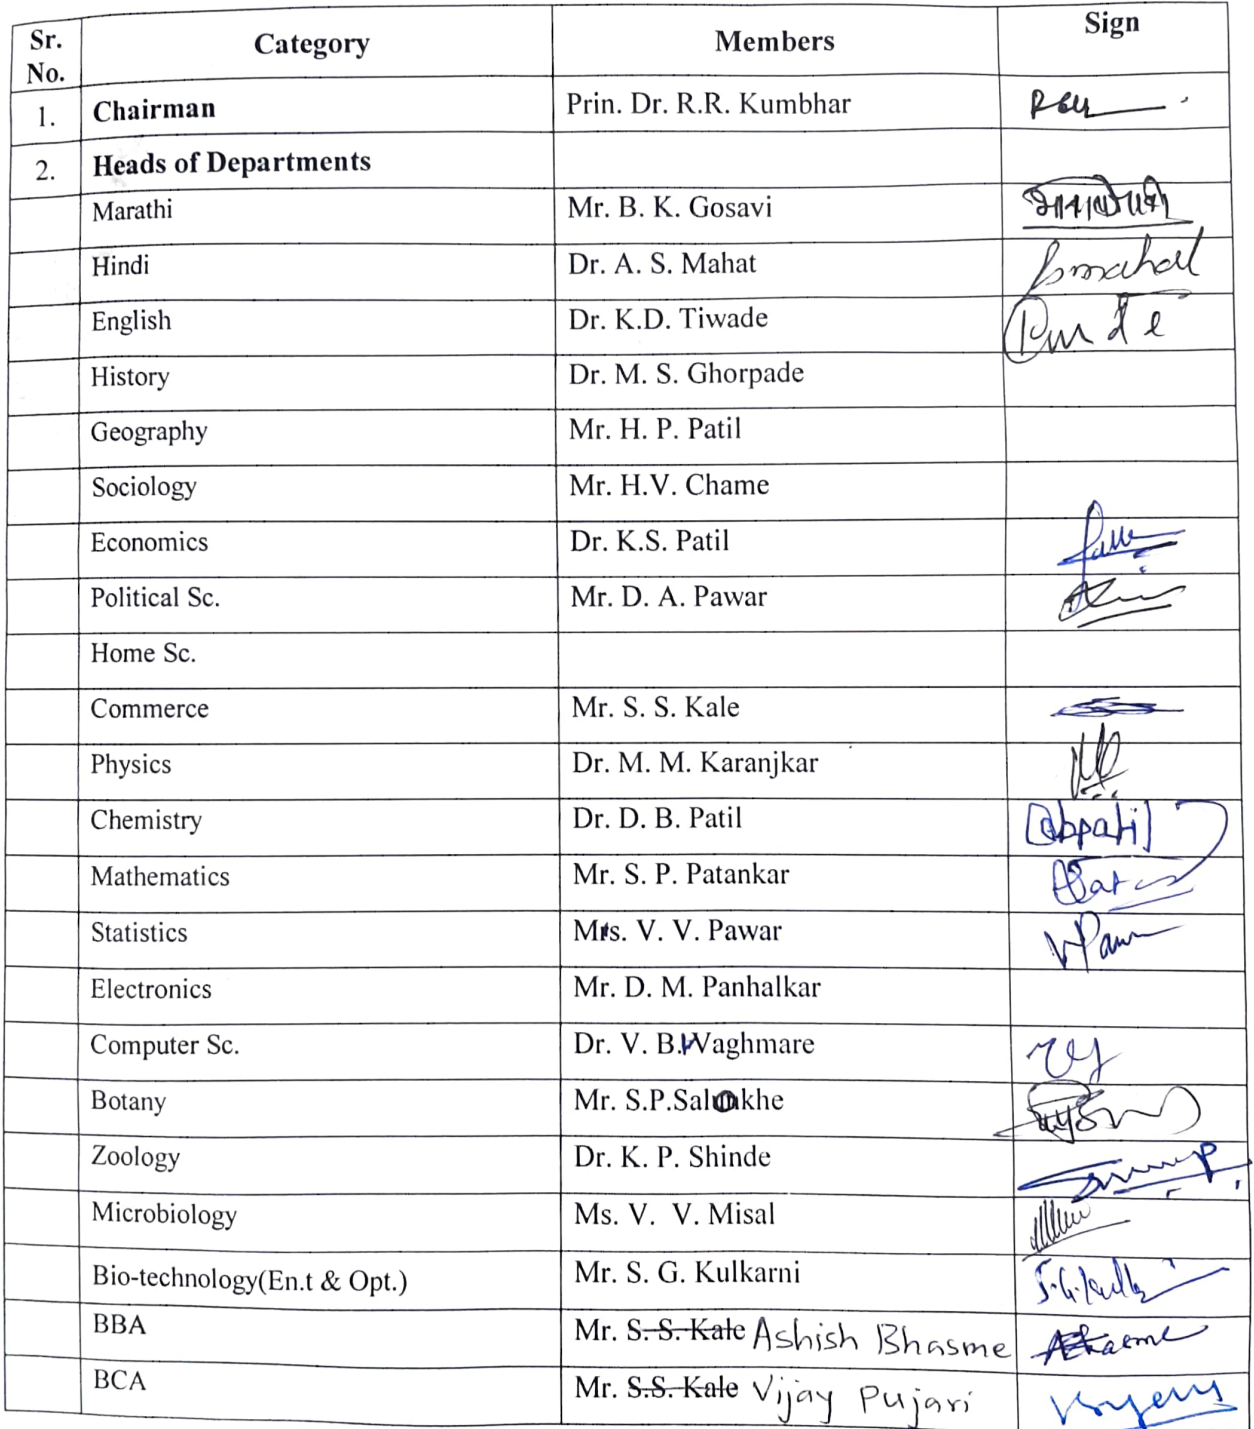 Sr. No. Category Members Sign
1. Chairman Prin. Dr. R.R. Kumbhar
2. Heads of Departments
Marathi Mr. B. K. Gosavi
Hindi Dr. A. S. Mahat
English Dr. K.D. Tiwade
History Dr. M. S. Ghorpade
Geography Mr. H. P. Patil
Sociology Mr. H.V. Chame
Economics Dr. K.S. Patil
Political Sc. Mr. D. A. Pawar
Home Sc.
Commerce Mr. S. S. Kale
Physics Dr. M. M. Karanjkar
Chemistry Dr. D. B. Patil dbpatil
Mathematics Mr. S. P. Patankar
Statistics Mrs. V. V. Pawar
Electronics Mr. D. M. Panhalkar
Computer Sc. Dr. V. B. Waghmare
Botany Mr. S.P.Salunkhe
Zoology Dr. K. P. Shinde
Microbiology Ms. V. V. Misal
Bio-technology(En.t & Opt.) Mr. S. G. Kulkarni
BBA Mr. S. S. Kale Ashish Bhasme
BCA Mr. S.S. Kale Vijay Pujari